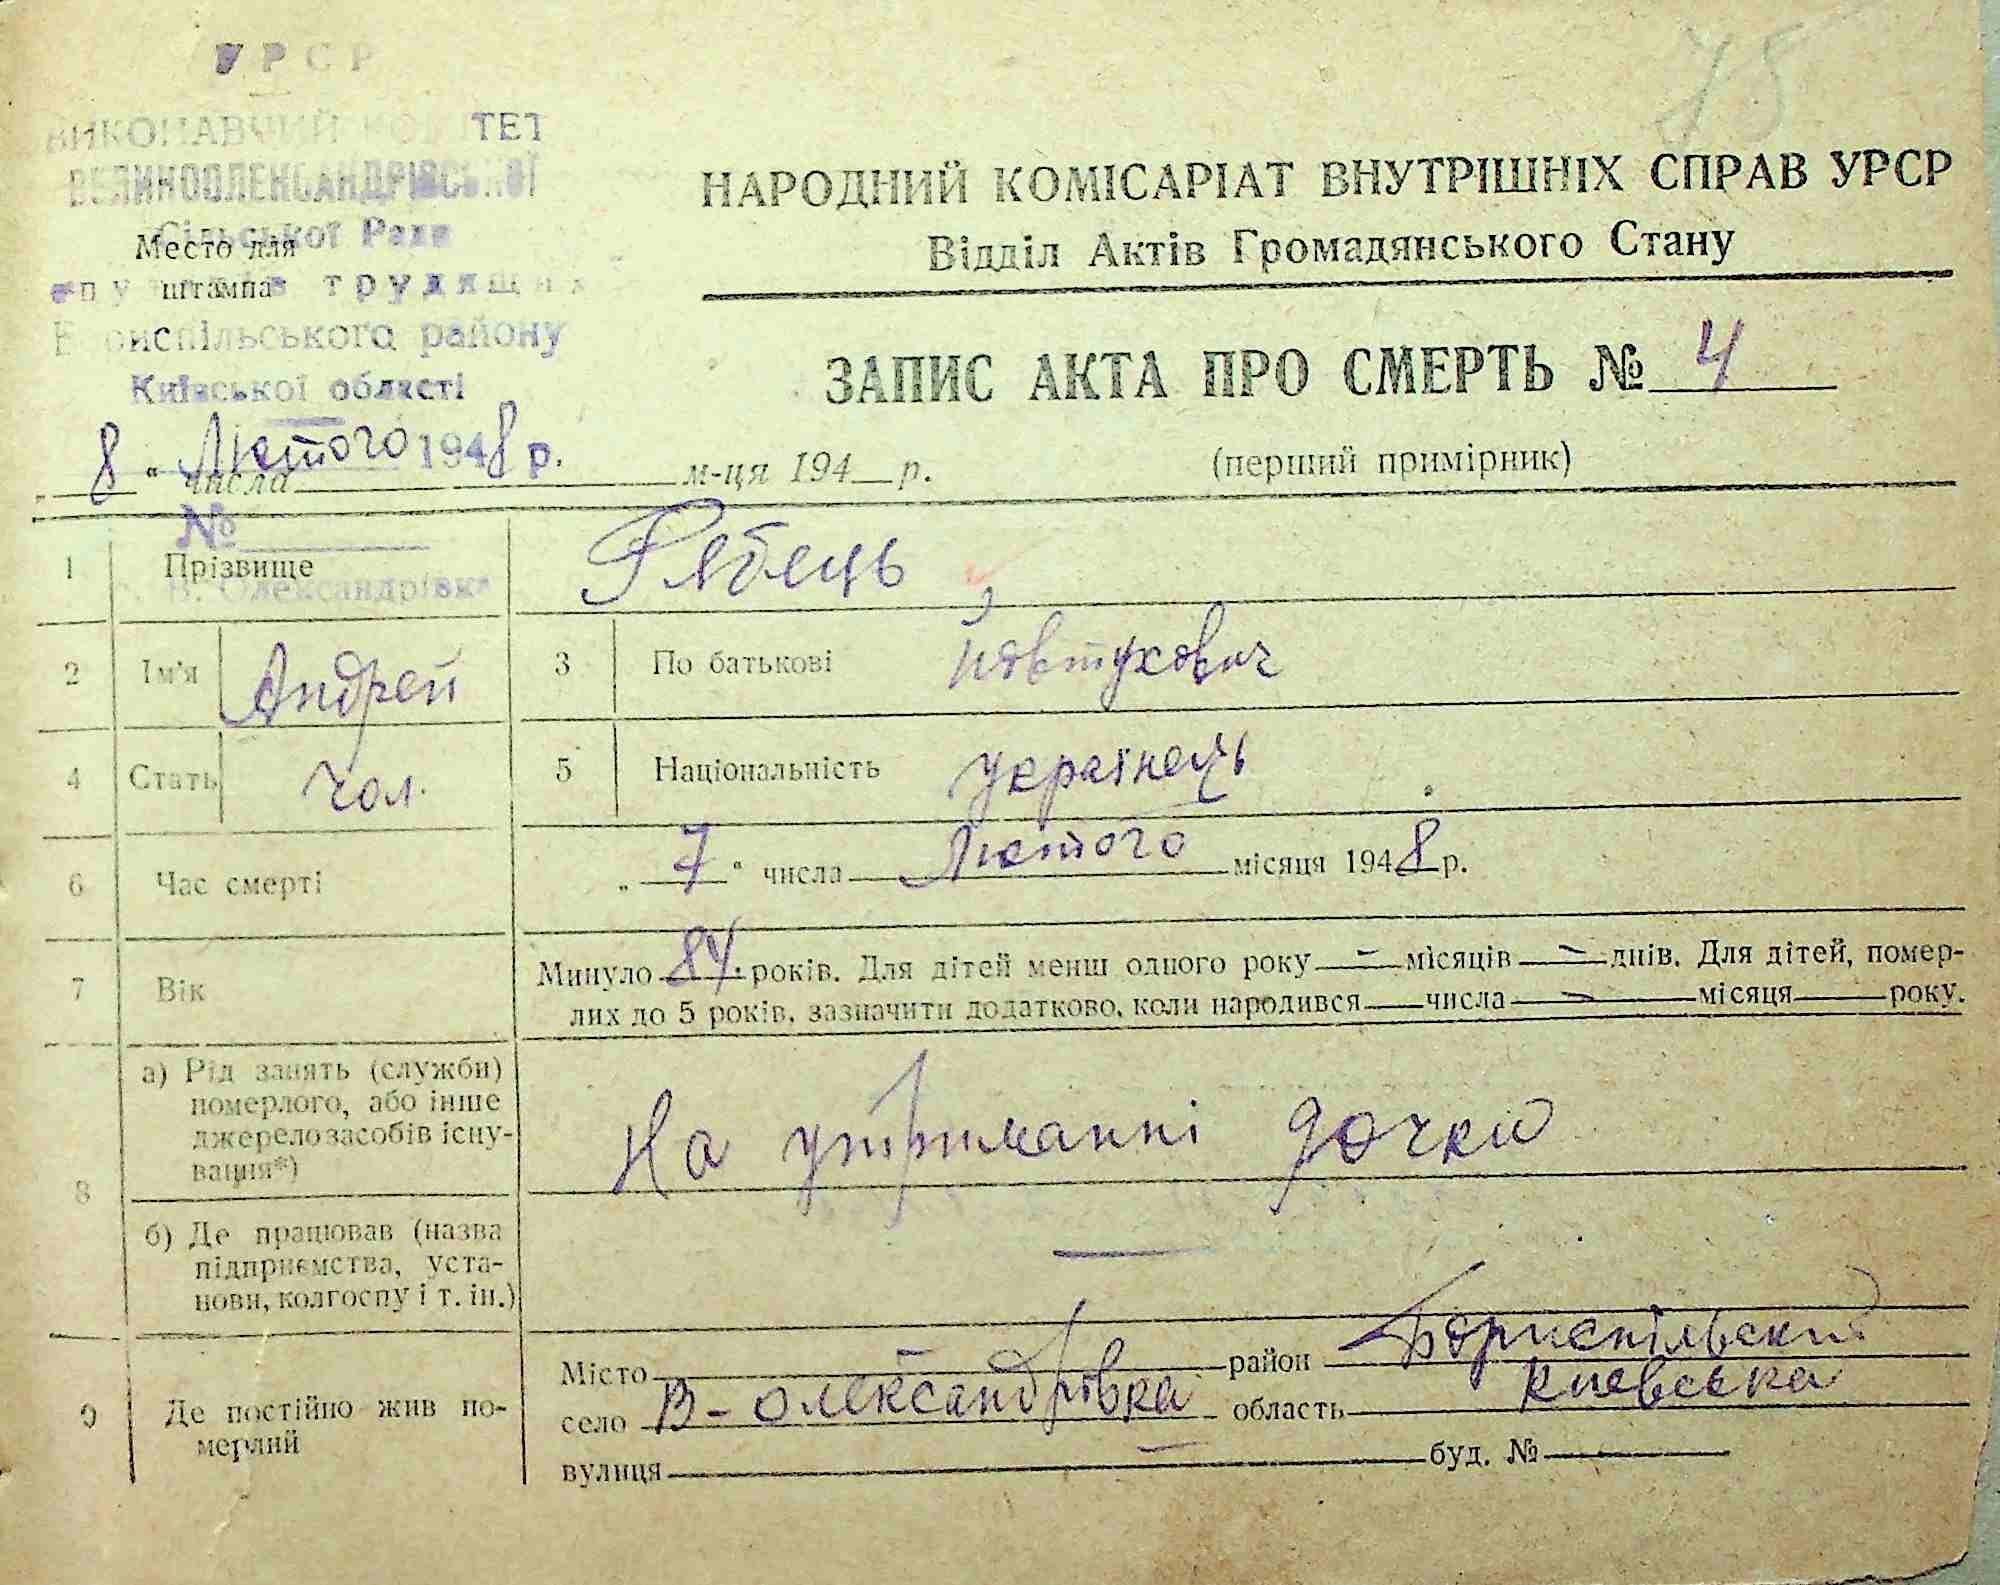 УРСР
ВИКОНАВЧИЙ КОМІТЕТ
ВЕЛИКООЛЕКСАНДРІВСЬКОЇ
Сільської Ради
Место для
штампа
трудящих
Бориспільського району
Київської області
75
НАРОДНИЙ КОМІСАРІАТ ВНУТРІШНІХ СПРАВ УРСР
Відділ Актів Громадянського Стану
ЗАПИС АКТА ПРО СМЕРТЬ № 4
(перший примірник)
8 " Лютого 1948 р.
„ " числа м-ця 194 р.
№
В. Олександрівка
1 Прізвище Рябець
2 Ім'я Андрей 3 По батькові Йовтухович
4 Стать чол. 5 Національність українець
6 Час смерті „ 7 " числа Лютого місяця 1948 р.
7 Вік Минуло 84 років. Для дітей менш одного року – місяців – днів. Для дітей, помер-
лих до 5 років, зазначити додатково, коли народився числа – місяця року.
8 а) Рід занять (служби)
померлого, або інше
джерело засобів існу-
вання*)
На утриманні дочки
б) Де працював (назва
підприємства, уста-
нови, колгоспу і т. ін.)
—
9 Де постійно жив по-
мерлий
Місто – район Бориспільский
село В-Олександрівка область Киевська
вулиця – буд. №